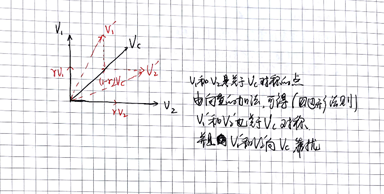 V₁
V₁'
V_C
rV₁
(1-r)V_C
V₂'
rV₂
V₂
V₁和V₂是关于V_C对称的点
由向量的加法,可得(四边形法则)
V₁'和V₂'也关于V_C对称
并且 V₁'和V₂'向V_C靠拢